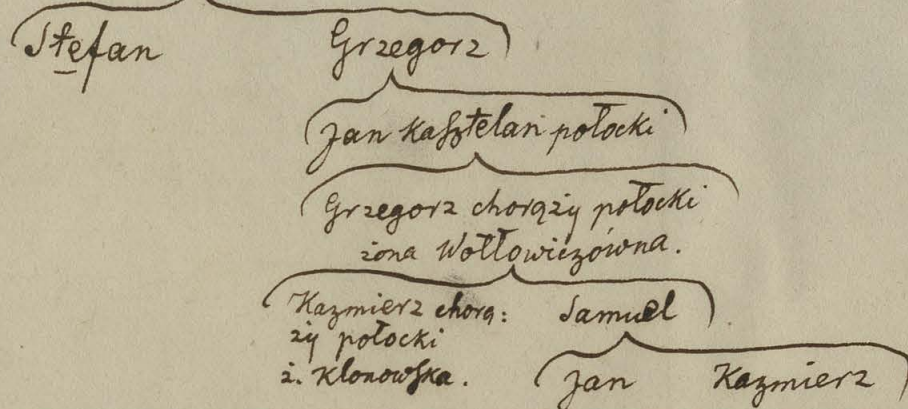 Stefan Grzegorz
Jan Kasztelan połocki
Grzegorz chorąży połocki
żona Wołłowiczówna.
Kazmierz chorą: Samuel
ży połocki
ż. Klonowska.
Jan Kazmierz